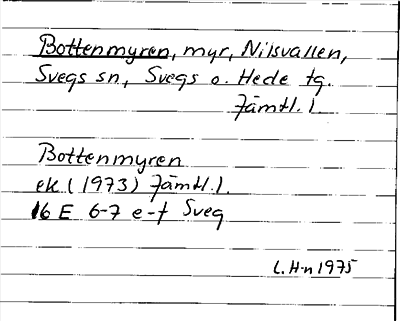 Bottenmyren, myr, Nilsvallen,
Svegs sn, Svegs o. Hede tg.
Jämtl. l.
Bottenmyren
ek (1973) Jämtl. l.
16 E 6-7 e-f Sveg
L. H-n 1975